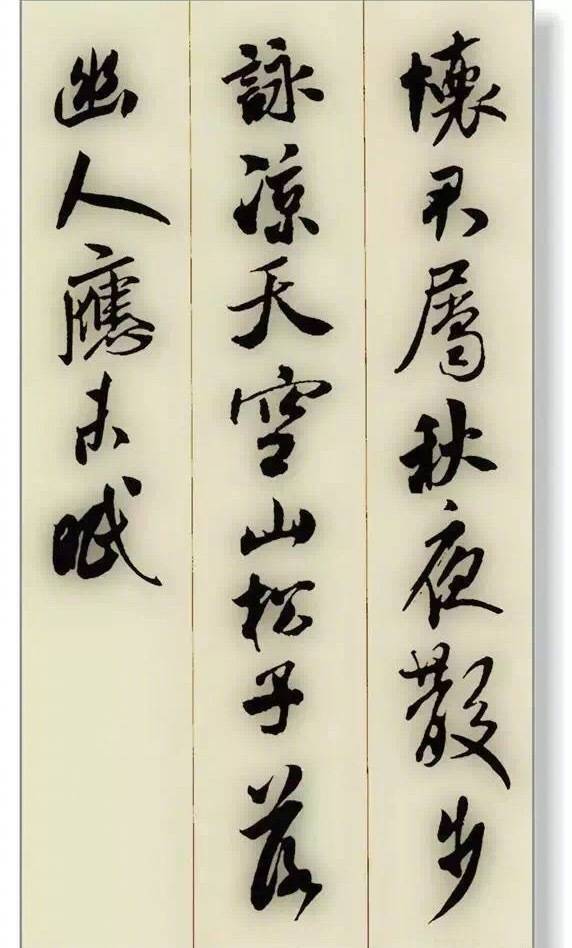 懷君屬秋夜散步
詠涼天空山松子落
幽人應未眠